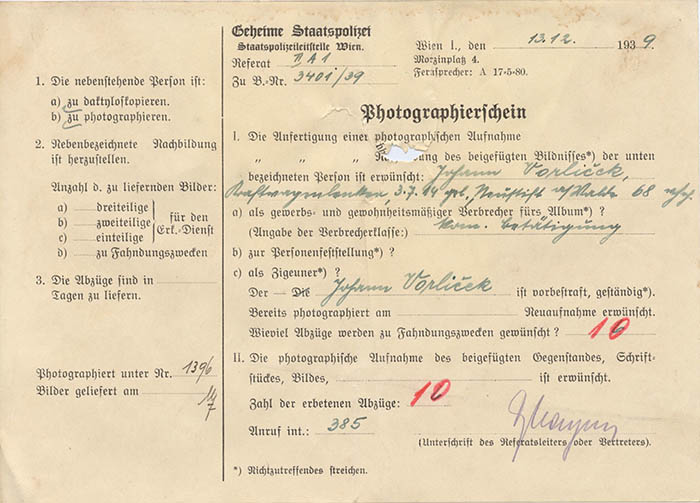 Geheime Staatspolizei
Staatspolizeileitstelle Wien.
Referat II A 1
Zu B.-Nr. 3401/39
Wien I., den 13.12. 1939.
Morzinplatz 4.
Fernsprecher: A 17-5-80.
1. Die nebenstehende Person ist:
a) zu daktyloskopieren.
b) zu photographieren.
2. Nebenbezeichnete Nachbildung
ist herzustellen.
Anzahl d. zu liefernden Bilder:
a) dreiteilige
b) zweiteilige
c) einteilige
für den
Erk.-Dienst
d) zu Fahndungszwecken
3. Die Abzüge sind in
Tagen zu liefern.
Photographiert unter Nr. 1396
Bilder geliefert am
Photographierschein
I. Die Anfertigung einer photographischen Aufnahme
„ „ des beigefügten Bildnisses*) der unten
bezeichneten Person ist erwünscht: Johann Vorliček,
Kraftwagenlenker, 3.7.14 geb., Neustift a/Walde 68
a) als gewerbs- und gewohnheitsmäßiger Verbrecher fürs Album*) ?
(Angabe der Verbrecherklasse:) kom. Betätigung
b) zur Personenfeststellung*) ?
c) als Zigeuner*) ?
Der – Die Johann Vorliček ist vorbestraft, geständig*).
Bereits photographiert am Neuaufnahme erwünscht.
Wieviel Abzüge werden zu Fahndungszwecken gewünscht ? 10
II. Die photographische Aufnahme des beigefügten Gegenstandes, Schrift-
stückes, Bildes, ist erwünscht.
Zahl der erbetenen Abzüge: 10
Anruf int.: 385
(Unterschrift des Referatsleiters oder Vertreters).
*) Nichtzutreffendes streichen.